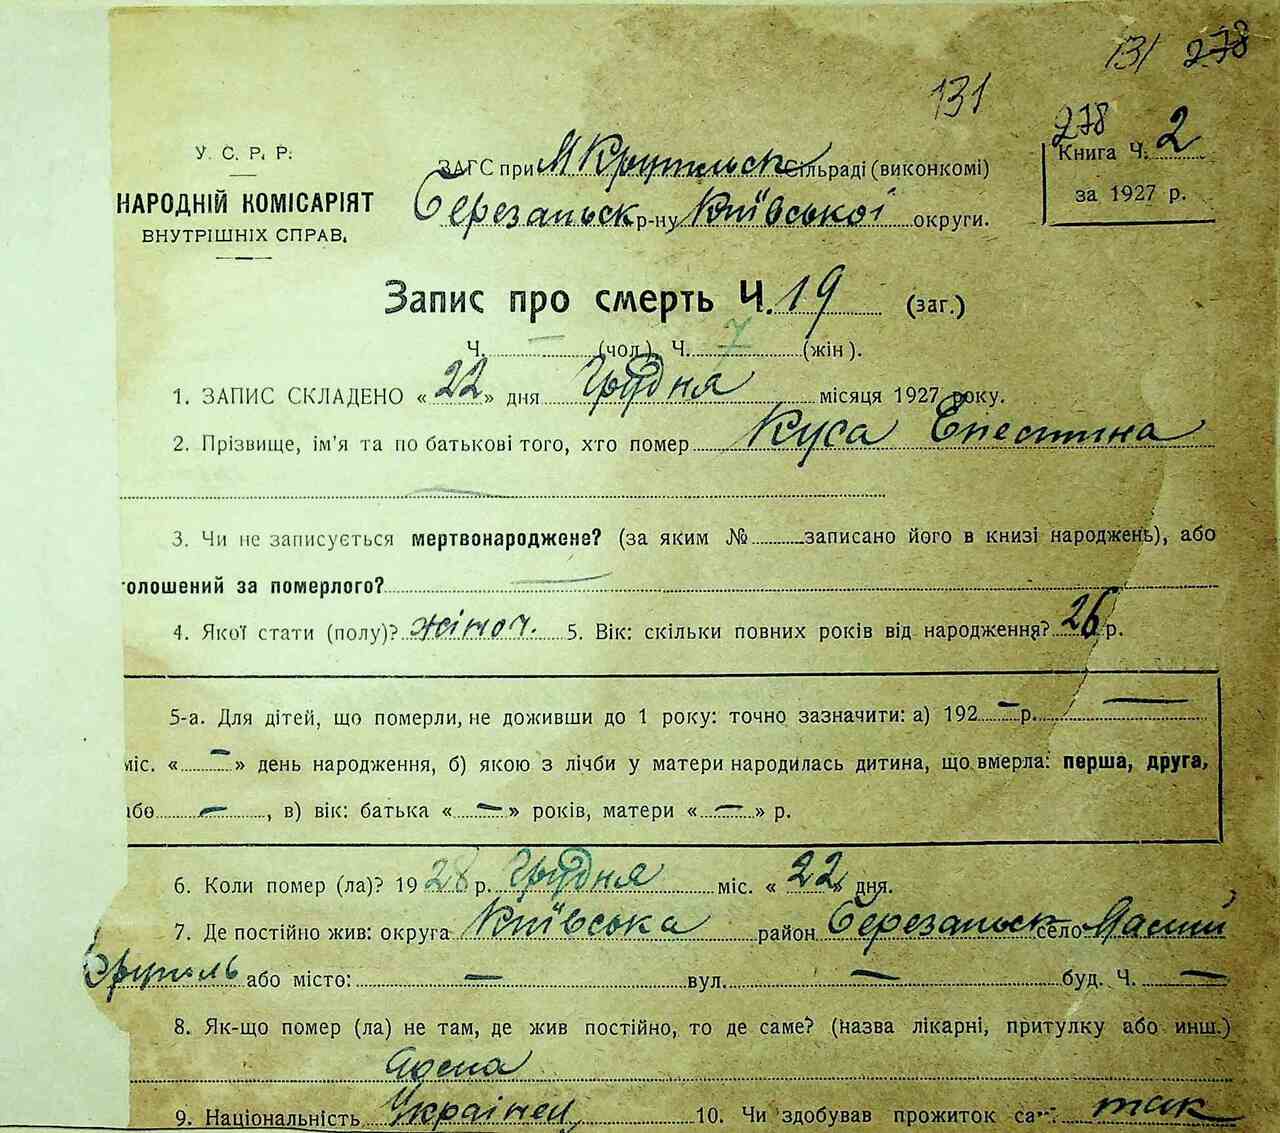 131 278
131
278
У. С. Р. Р.
НАРОДНІЙ КОМІСАРІЯТ
ВНУТРІШНІХ СПРАВ.
ЗАГС при М Крупильск сільраді (виконкомі)
Березаньск р-ну Київської округи.
Книга Ч. 2
за 1927 р.
Запис про смерть Ч. 19 (заг.)
Ч. — (чол.) Ч. 7 (жін).
1. ЗАПИС СКЛАДЕНО « 22 » дня Грудня місяця 1927 року.
2. Прізвище, ім'я та по батькові того, хто помер Куса Епестина
3. Чи не записується мертвонароджене? (за яким № записано його в книзі народжень), або
голошений за померлого? —
4. Якої стати (полу)? жіноч. 5. Вік: скільки повних років від народження? 26 р.
5-а. Для дітей, що померли, не доживши до 1 року: точно зазначити: а) 192 — р. —
міс. « — » день народження, б) якою з лічби у матери народилась дитина, що вмерла: перша, друга,
або — , в) вік: батька « — » років, матери « — » р.
6. Коли помер (ла)? 1928 р. Грудня міс. « 22 » дня.
7. Де постійно жив: округа Київська район Березаньск село Малий
Крупиль або місто: — вул. — буд. Ч. —
8. Як-що помер (ла) не там, де жив постійно, то де саме? (назва лікарні, притулку або инш.)
9. Національність Українец 10. Чи здобував прожиток са так